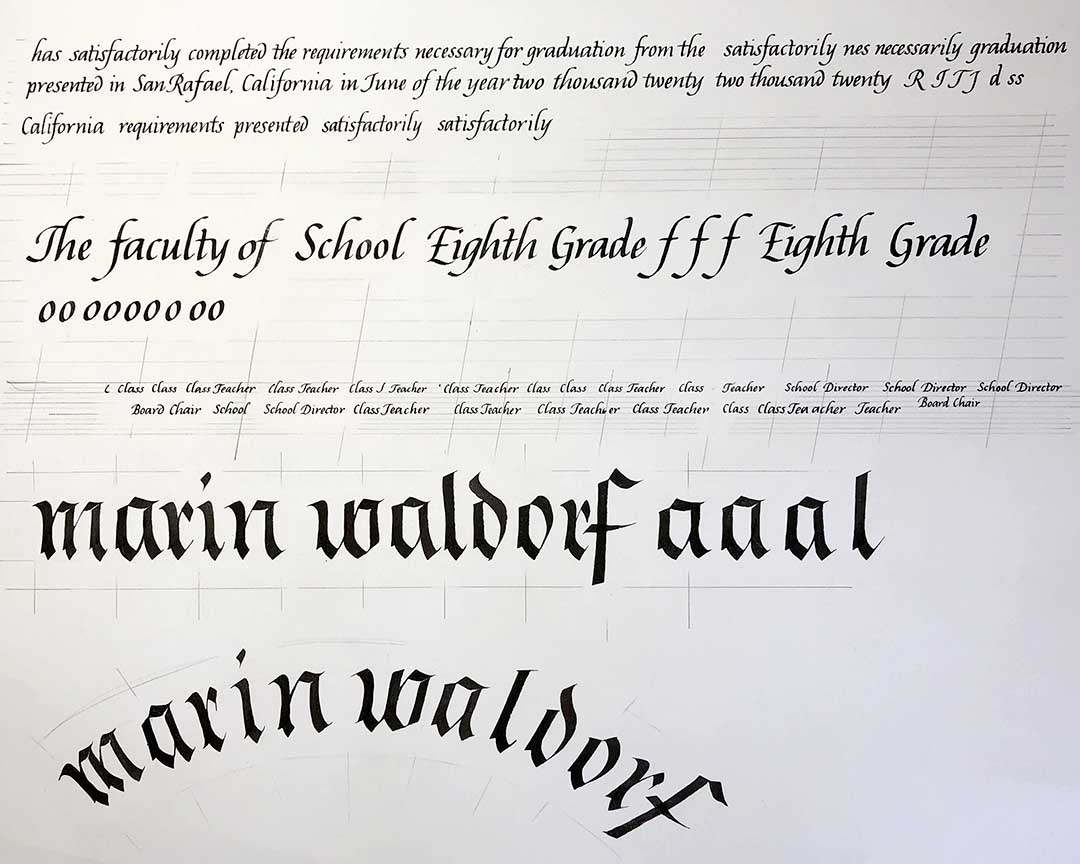 has satisfactorily completed the requirements necessary for graduation from the satisfactorily nes necessarily graduation
presented in San Rafael, California in June of the year two thousand twenty two thousand twenty R I T J d ss
California requirements presented satisfactorily satisfactorily
The faculty of School Eighth Grade f f f Eighth Grade
oo oooooo oo
c Class Class Class Teacher Class Teacher Class J Teacher Class Teacher Class Class Class Teacher Class Teacher School Director School Director School Director
Board Chair School School Director Class Teacher Class Teacher Class Teacher Class Teacher Class Class Tea acher Teacher Board Chair
marin waldorf a a a l
marin waldorf